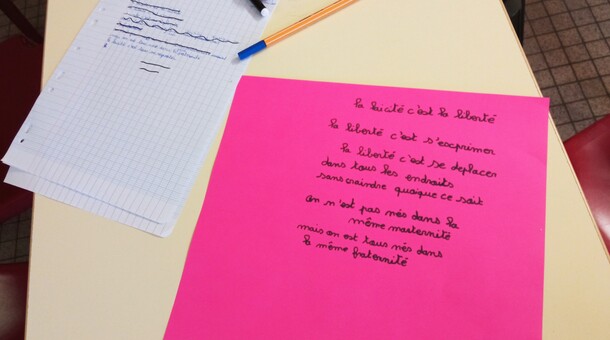 la laicité c'est la liberté
la liberté c'est s'escprimer
la liberté c'est se deplacer
dans tous les endraits
sans craindre quoique ce soit
On n'est pas nés dans la
même masternité
mais on est tous nés dans
la même fraternité